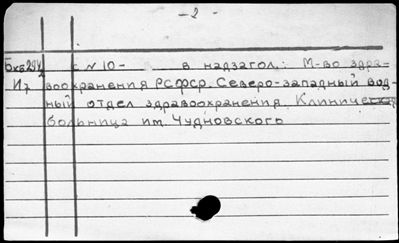 - 2 -
Бкб294/2 с N 10 - в надзагол.: М-во здра-
И7 воохранения РСФСР. Северо-западный вод-
ный отдел здравоохранения. Клиническая
больница им. Чудновского